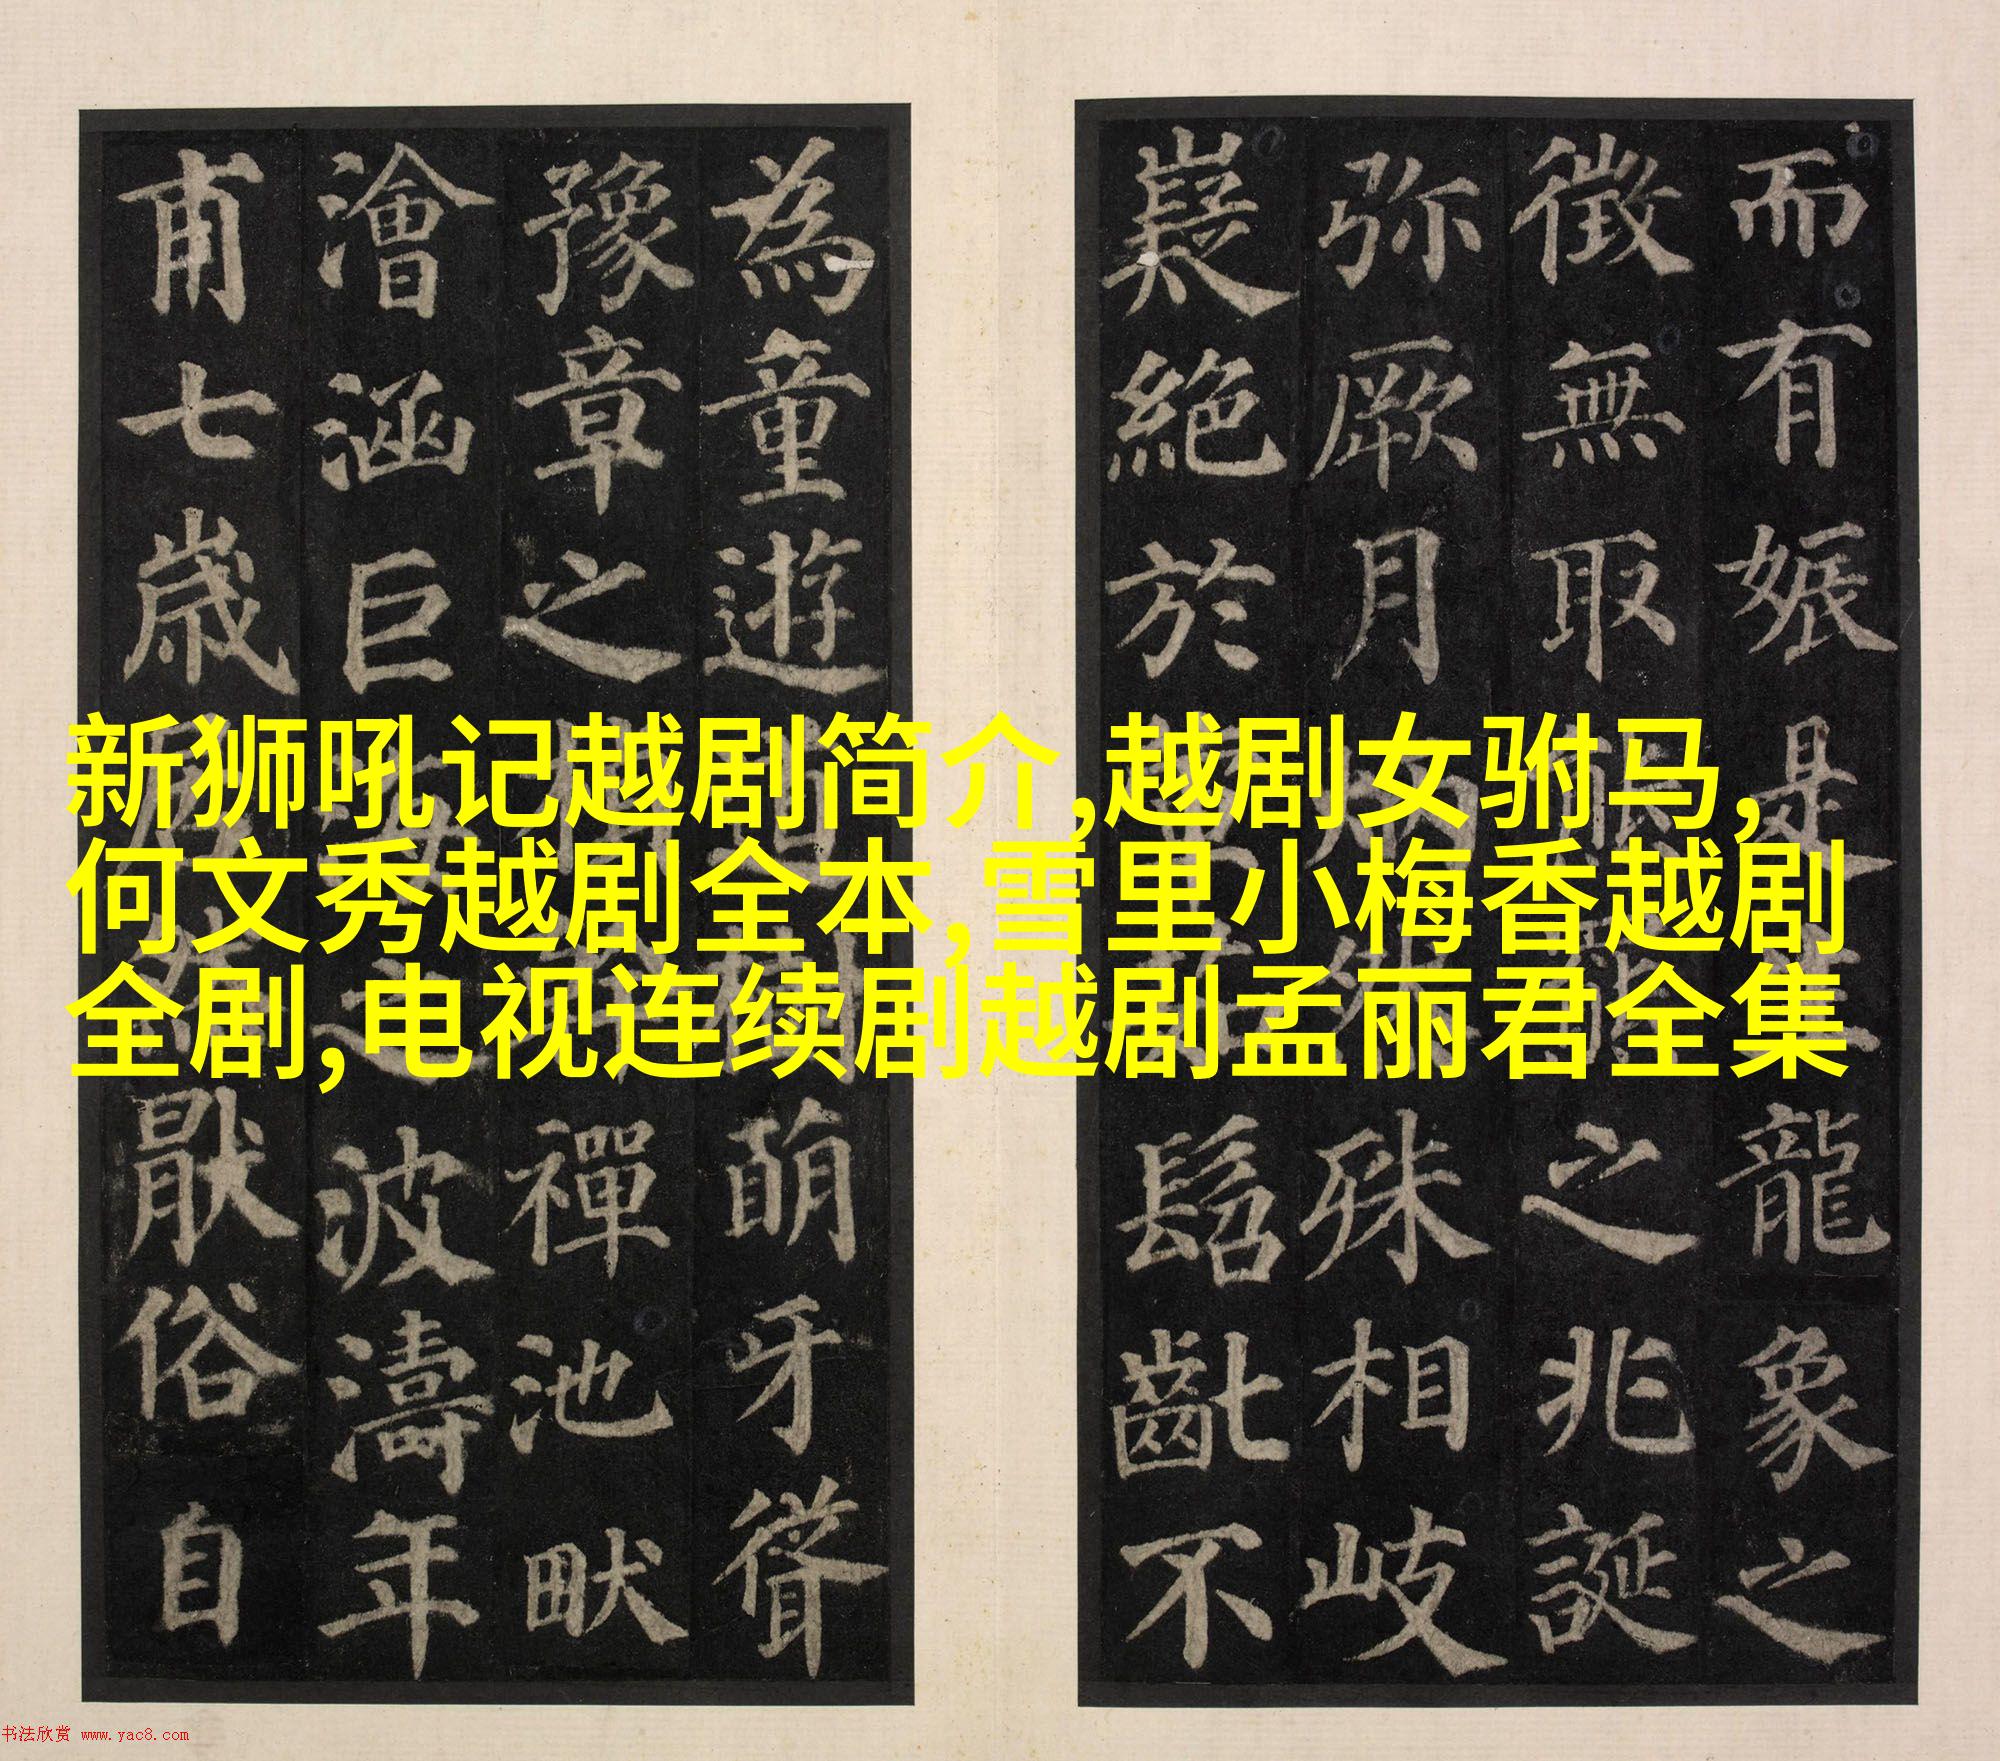 而有娠是龍象之
徵無取之兆誕
弥厥月殊相岐
嶷絕於髫齔不
為童遊萌牙聳
豫章之禪池畎
澮涵巨海之波濤年
甫七歲猒俗自
新狮吼记越剧简介,越剧女驸马,
何文秀越剧全本,雪里小梅香越剧
全剧,电视连续剧越剧孟丽君全集
书法欣赏 www.yac8.com